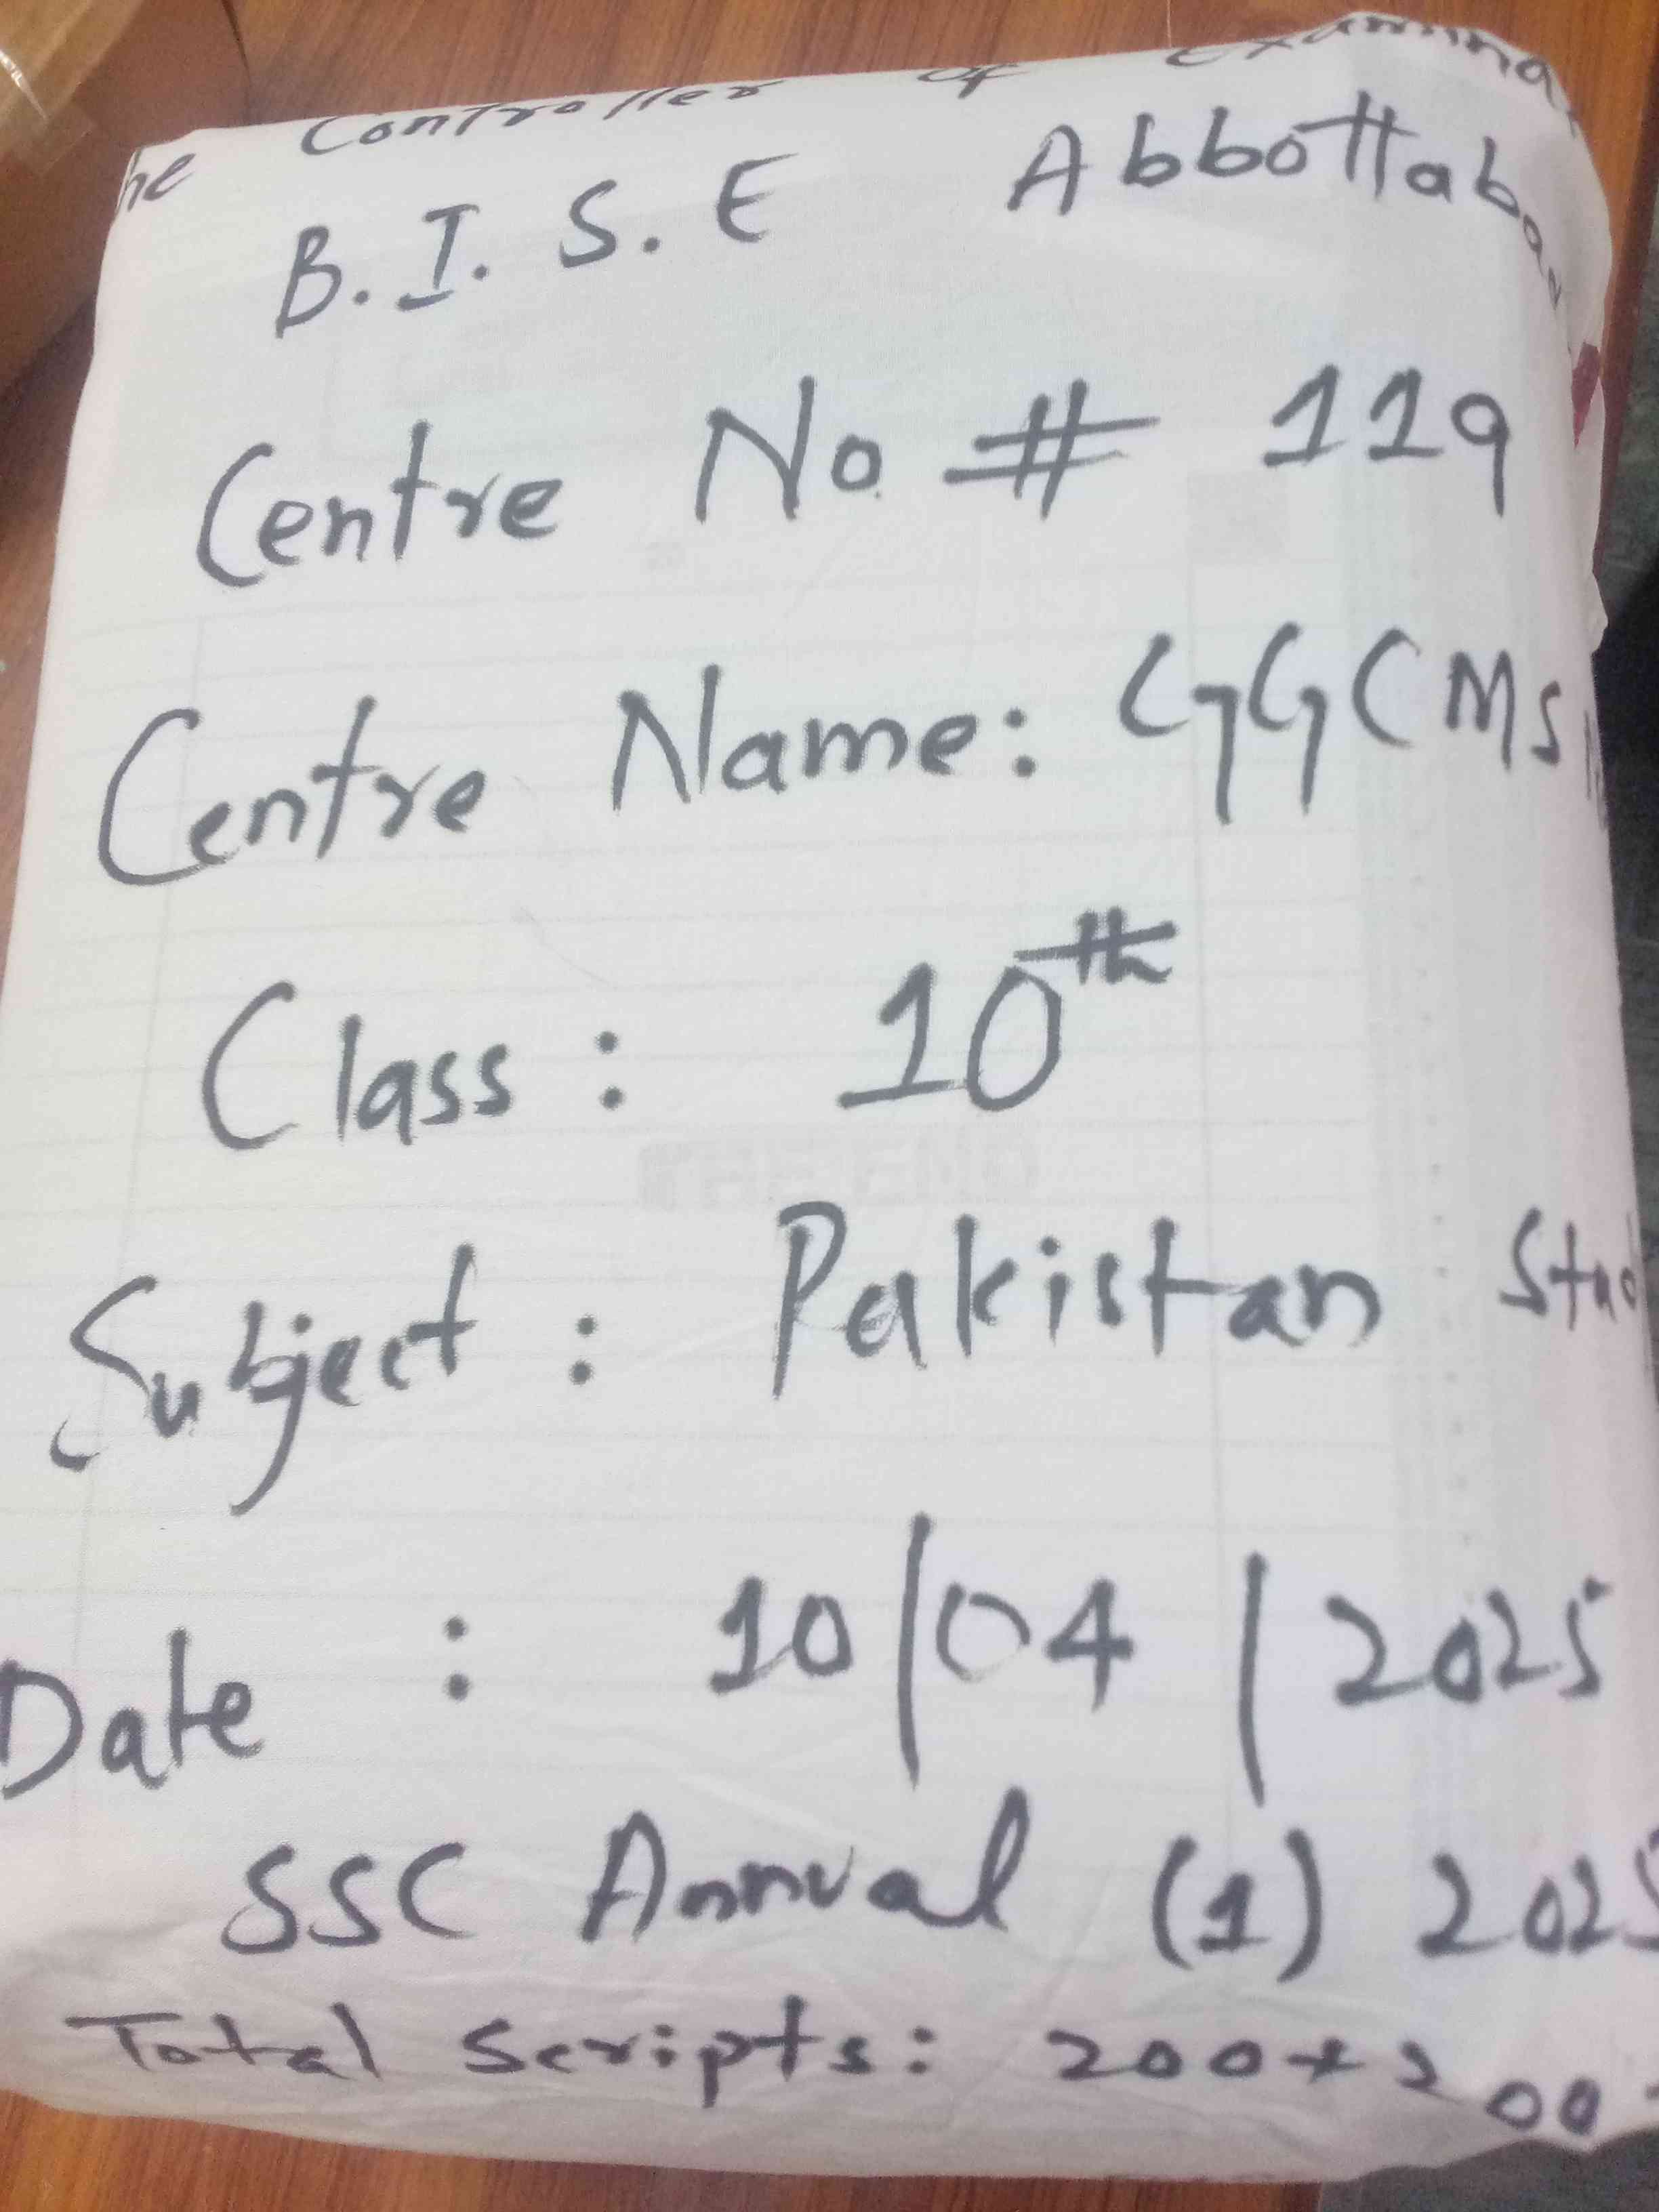 he Controller of Examina
B.I.S.E Abbottabad
Centre No # 119
Centre Name: GGCMS
Class: 10th
THE END
Subject: Pakistan Stud
Date: 10/04/2025
SSC Annual (1) 2025
Total Scripts: 200+200